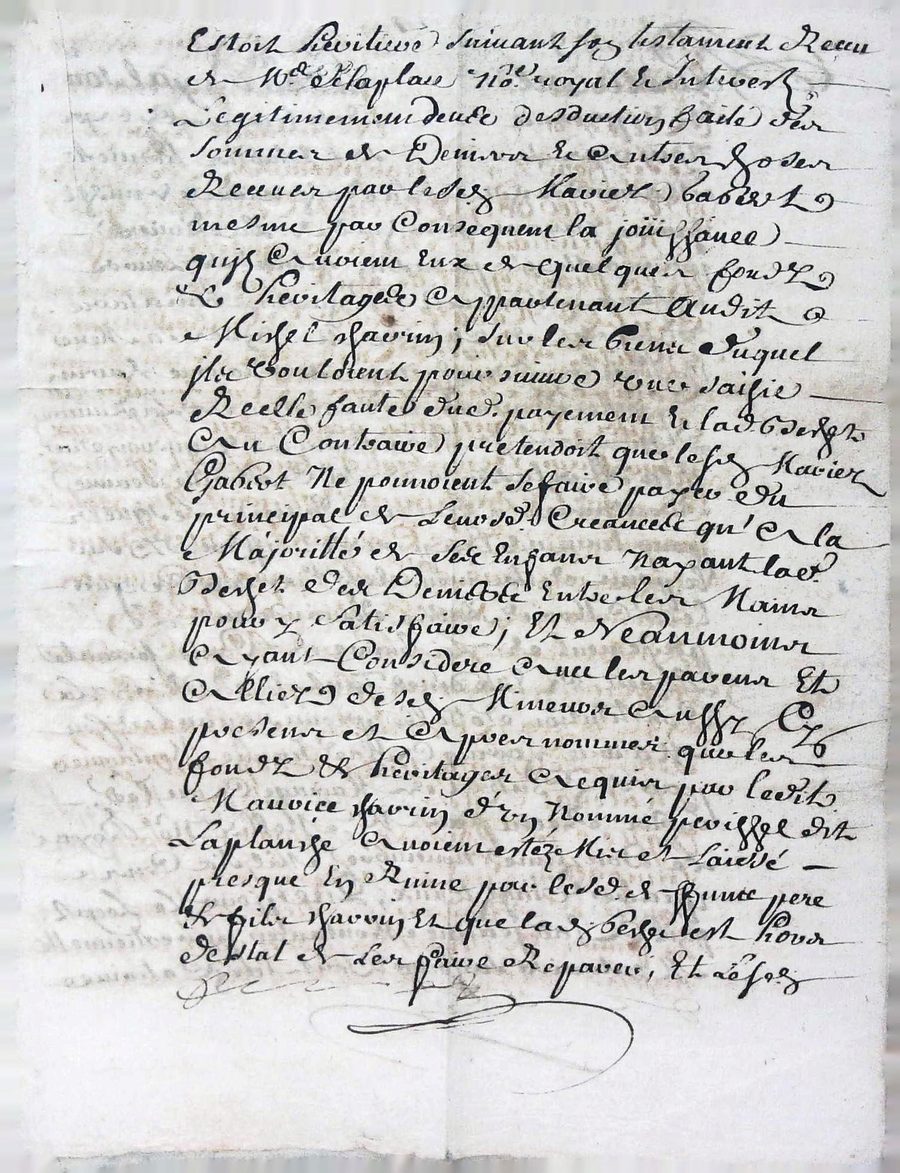 Estoit heritiere suivant son testament Receu
de Mr. Delaplace nore. royal Et Interest
Legitimement deubs desduction faite des
sommes de Deniers Et Autres choses
Receues par lesd Mariez Gabert
mesme par Consequent la joüissance
quils Avoient Eux de quelques fondz
& heritages Appartenant Audit
Michel Charrin; sur les biens duquel
ils vouloient poursuivre une saisie
Reelle faute dud. payement Et lad Berget
Au Contraire pretendoit que lesd Mariez
Gabert Ne pouvoient se faire payer du
principal de Leursd. Creances qu'A la
Majoritté de ses Enfans Nayant lad.
Berget des Deniers Entre les Mains
pour y satisfaire; Et Neanmoins
Ayant Consideré Avec les parens Et
Alliez desd Mineurs Aussy Cy
presens et Apres nommes que les
fondz & heritages Acquis par ledit
Maurice Charrin d'un Nommé dit
Laplanche Avoient estéz Mis et Laissé
presque En Ruine par lesd. deffunts pere
& fils Charrin Et que lad Berget est hors
destat de Les faire Reparer, Et Lesd